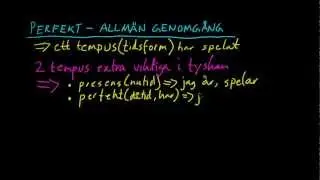 PERFEKT – ALLMÄN GENOMGÅNG
⇒ ett tempus(tidsform) har spelat
2 tempus extra viktiga i tyskan
⇒ • presens(nutid) ⇒ jag är, spelar
• perfekt(dåtid, har) ⇒ j